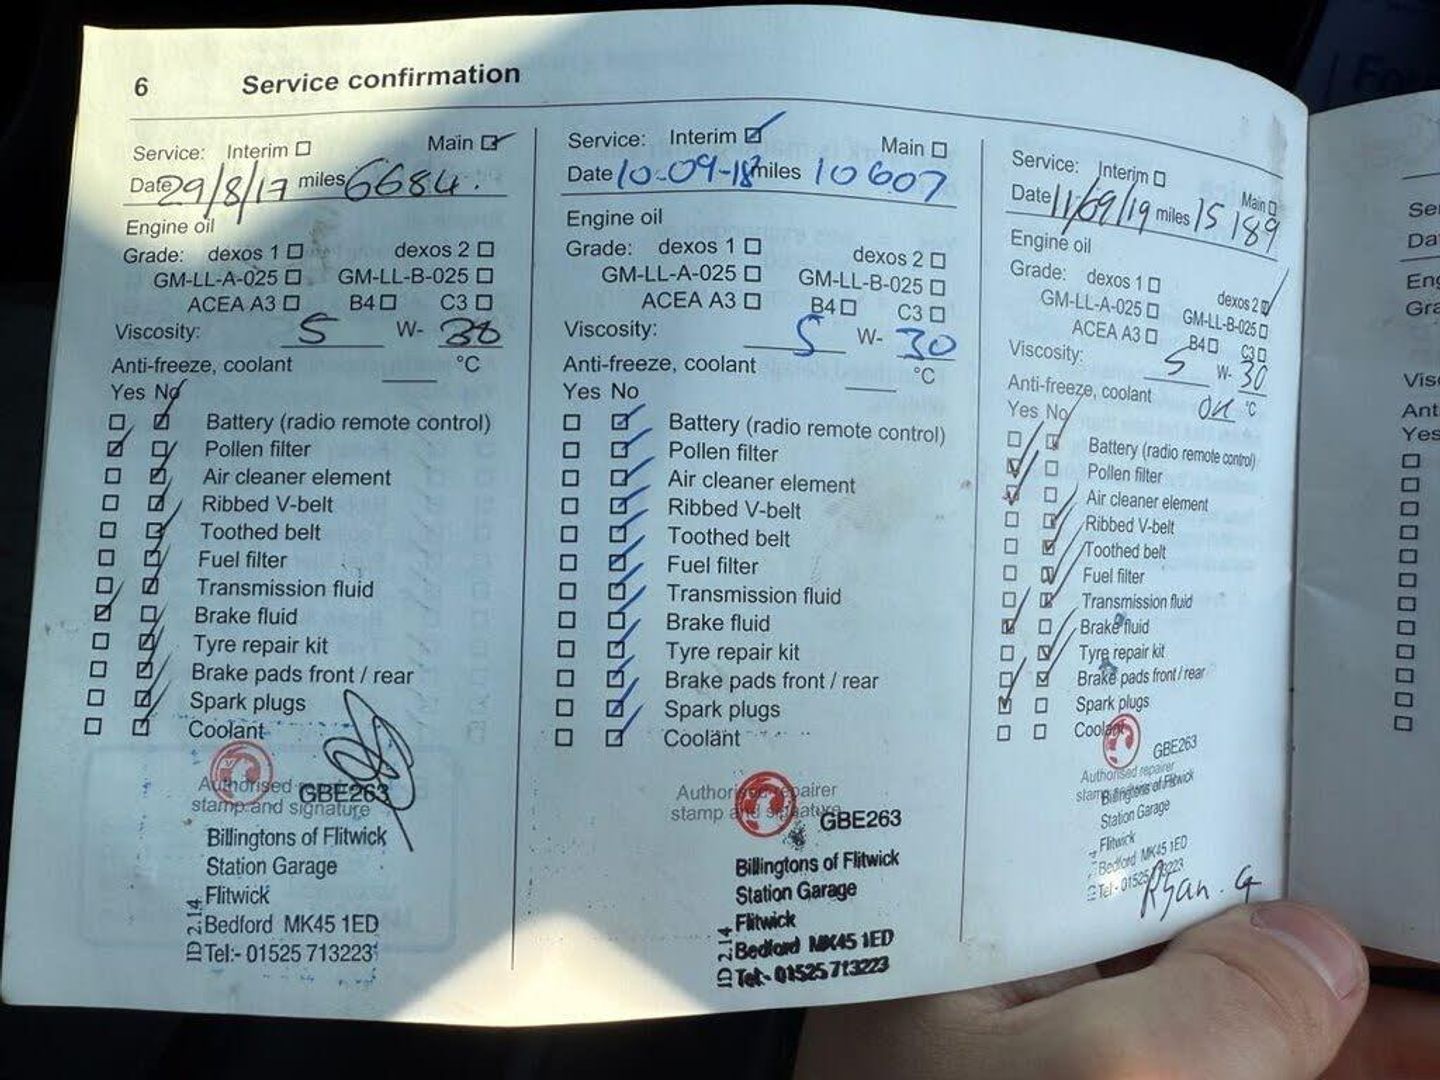 6 Service confirmation
Service: Interim Main
Date 29/8/17 miles 6684.
Engine oil
Grade: dexos 1 dexos 2
GM-LL-A-025 GM-LL-B-025
ACEA A3 B4 C3
Viscosity: 5 W- 30
Anti-freeze, coolant °C
Yes No
Battery (radio remote control)
Pollen filter
Air cleaner element
Ribbed V-belt
Toothed belt
Fuel filter
Transmission fluid
Brake fluid
Tyre repair kit
Brake pads front / rear
Spark plugs
Coolant
Authorised
stamp and signature
GBE263
Billingtons of Flitwick
Station Garage
Flitwick
Bedford MK45 1ED
Tel:- 01525 713223
ID 2.14
Service: Interim Main
Date 10-09-18 miles 10607
Engine oil
Grade: dexos 1 dexos 2
GM-LL-A-025 GM-LL-B-025
ACEA A3 B4 C3
Viscosity: 5 W- 30
Anti-freeze, coolant °C
Yes No
Battery (radio remote control)
Pollen filter
Air cleaner element
Ribbed V-belt
Toothed belt
Fuel filter
Transmission fluid
Brake fluid
Tyre repair kit
Brake pads front / rear
Spark plugs
Coolant
Authorised repairer
stamp and signature
GBE263
Billingtons of Flitwick
Station Garage
Flitwick
Bedford MK45 1ED
Tel:- 01525 713223
ID 2.14
Service: Interim Main
Date 11/09/19 miles 15189
Engine oil
Grade: dexos 1 dexos 2
GM-LL-A-025 GM-LL-B-025
ACEA A3 B4 C3
Viscosity: 5 W- 30
Anti-freeze, coolant OK °C
Yes No
Battery (radio remote control)
Pollen filter
Air cleaner element
Ribbed V-belt
Toothed belt
Fuel filter
Transmission fluid
Brake fluid
Tyre repair kit
Brake pads front / rear
Spark plugs
Coolant
GBE263
Authorised repairer
Billingtons of Flitwick
Station Garage
Flitwick
Bedford MK45 1ED
Tel:- 01525 713223
Ryan. G